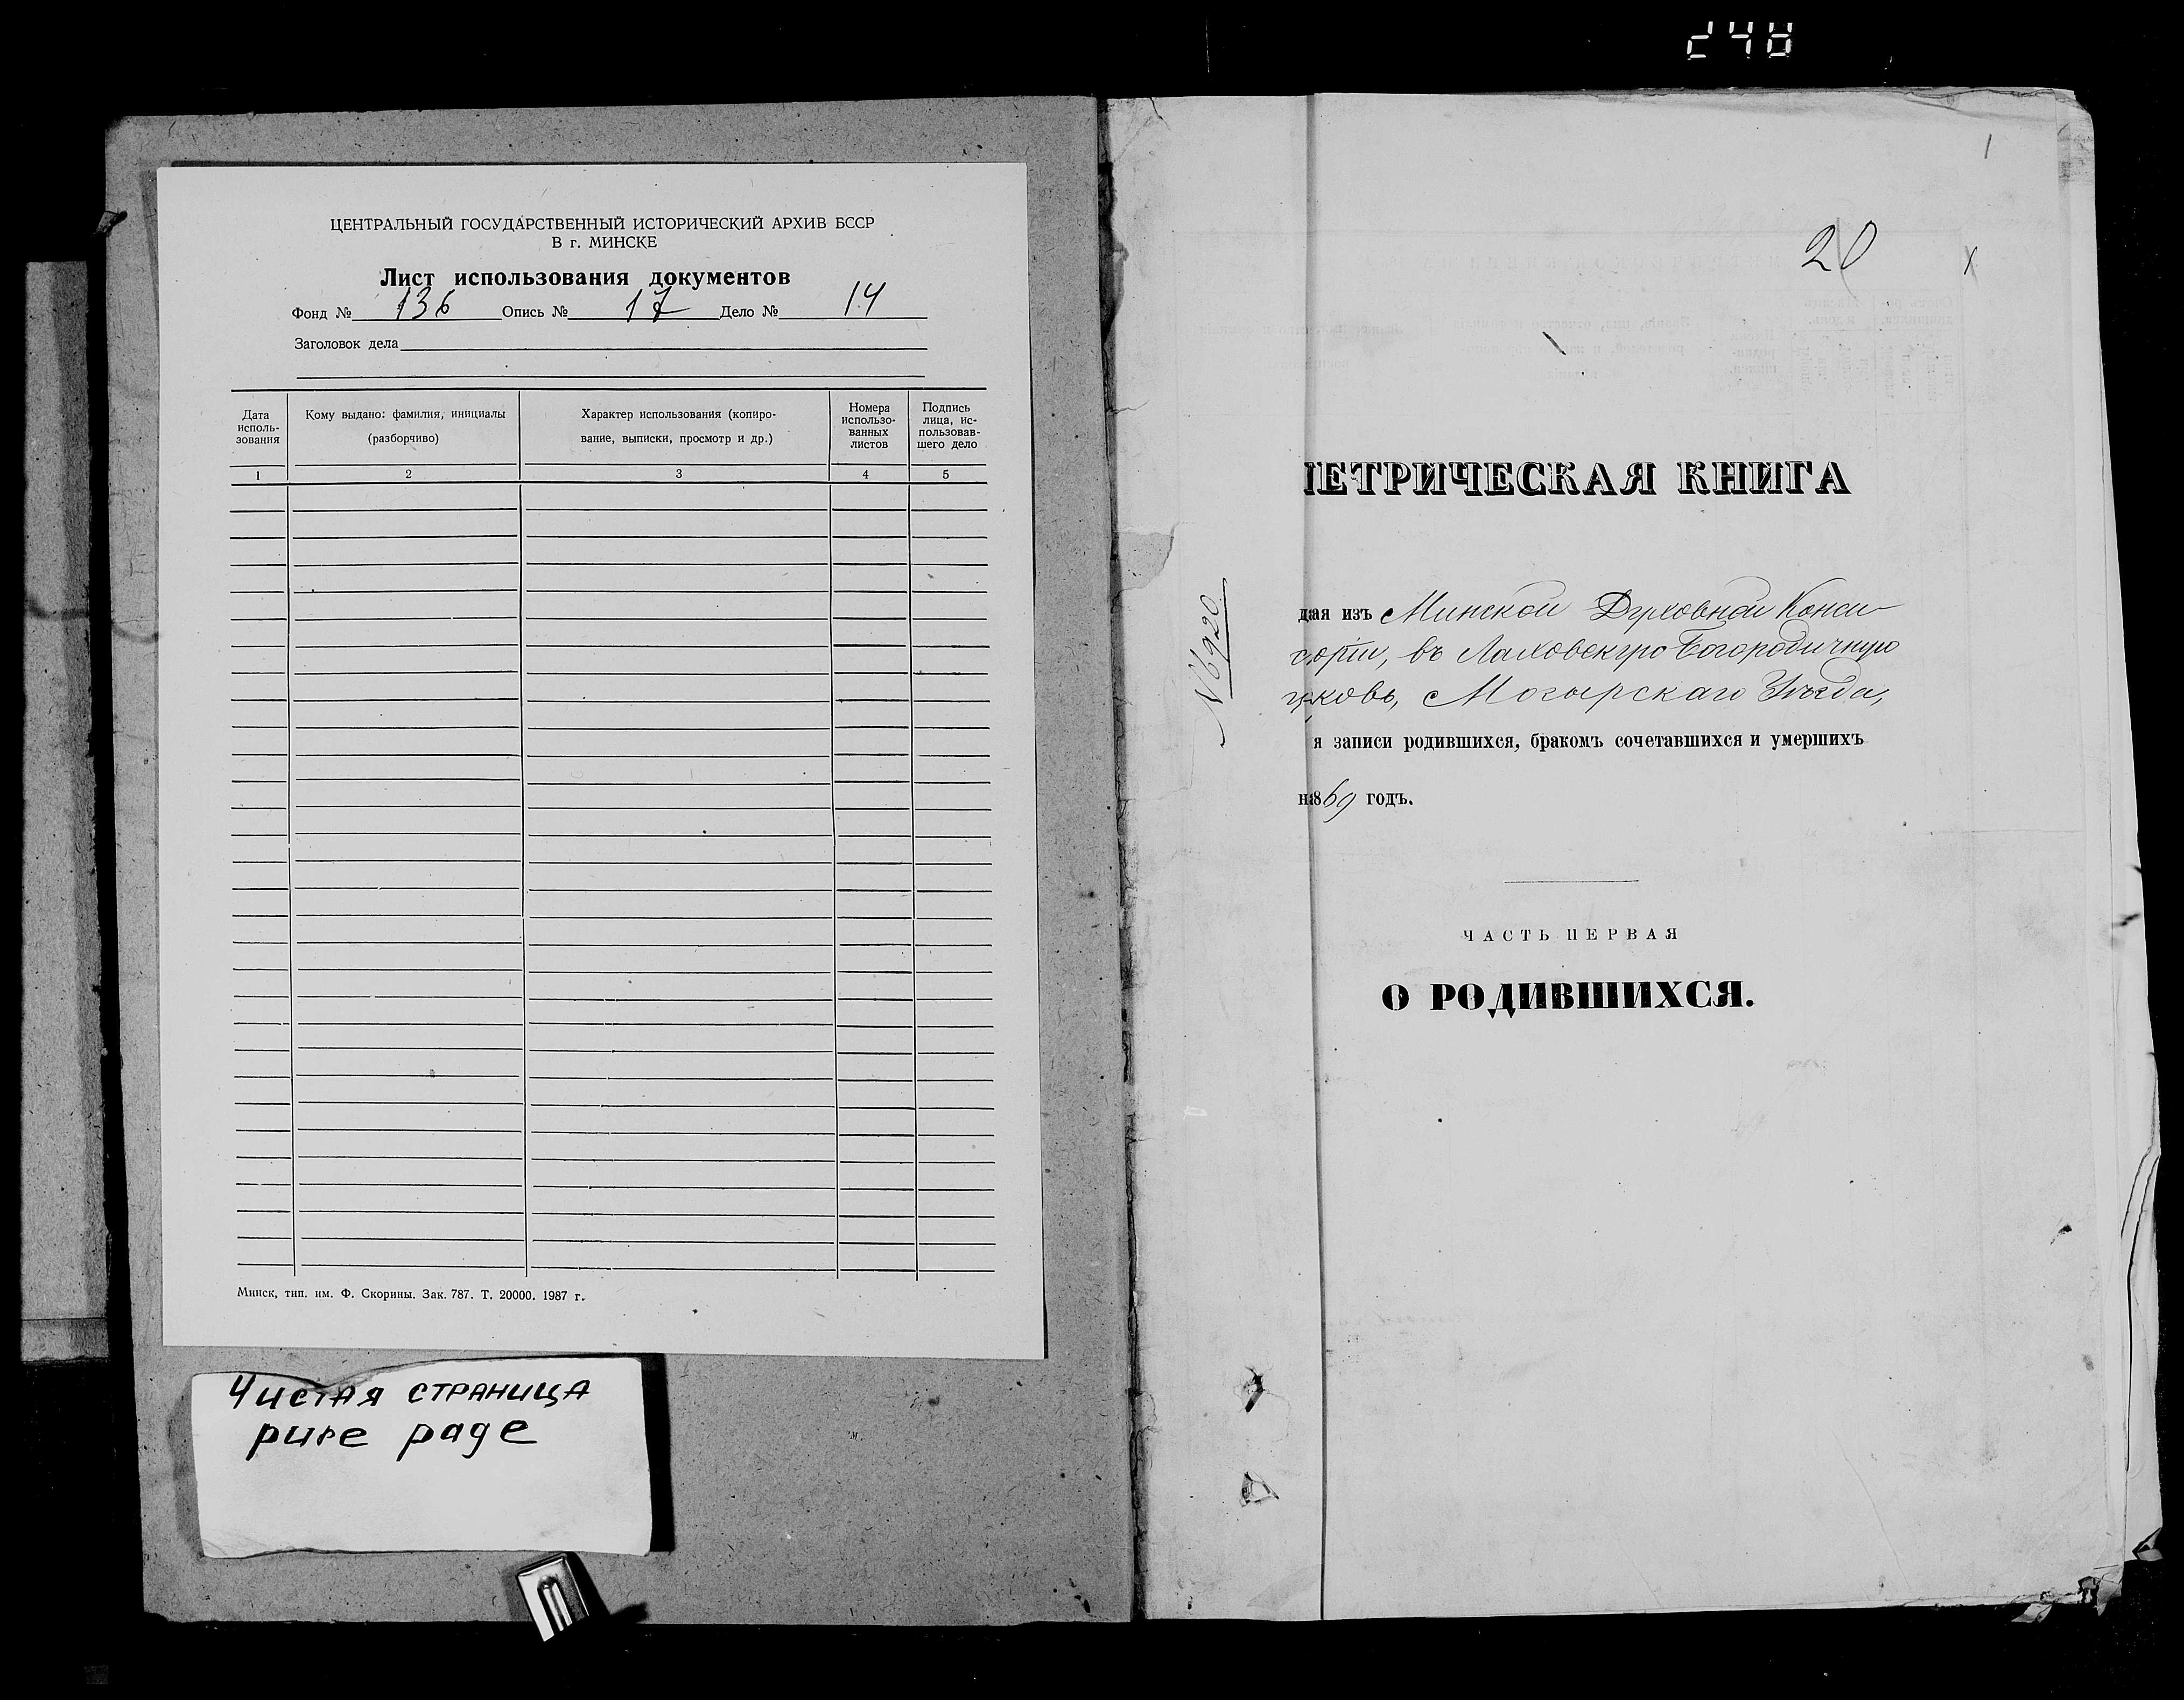 248
ЦЕНТРАЛЬНЫЙ ГОСУДАРСТВЕННЫЙ ИСТОРИЧЕСКИЙ АРХИВ БССР
В г. МИНСКЕ
Лист использования документов
Фонд № 136 Опись № 17 Дело № 14
Заголовок дела
Дата исполь-зования
Кому выдано: фамилия, инициалы (разборчиво)
Характер использования (копиро-вание, выписки, просмотр и др.)
Номера использо-ванных листов
Подпись лица, ис-пользовав-шего дело
1 2 3 4 5
Минск, тип. им. Ф. Скорины. Зак. 787. Т. 20000. 1987 г.
Чистая страница
pure page
1
20
ЕТРИЧЕСКАЯ КНИГА
№ 6920
ная изъ Минской Духовной Конси-
сторіи, въ Лаховскую Богородичную
церковь, Мозырскаго Уѣзда,
я записи родившихся, бракомъ сочетавшихся и умершихъ
на 1869 годъ.
ЧАСТЬ ПЕРВАЯ
О РОДИВШИХСЯ.